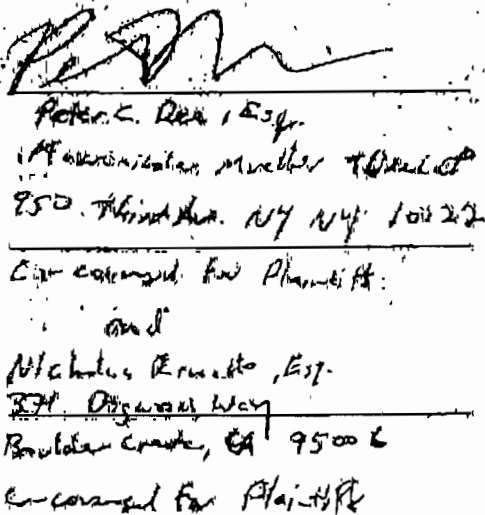 Peter C. Dee, Esq.
Mueller
950 Third Ave. NY NY 10022
Co-counsel for Plaintiff
and
Nicholas , Esq.
371 Dogwood Way
Boulder Creek, CA 95006
Co-counsel for Plaintiffs